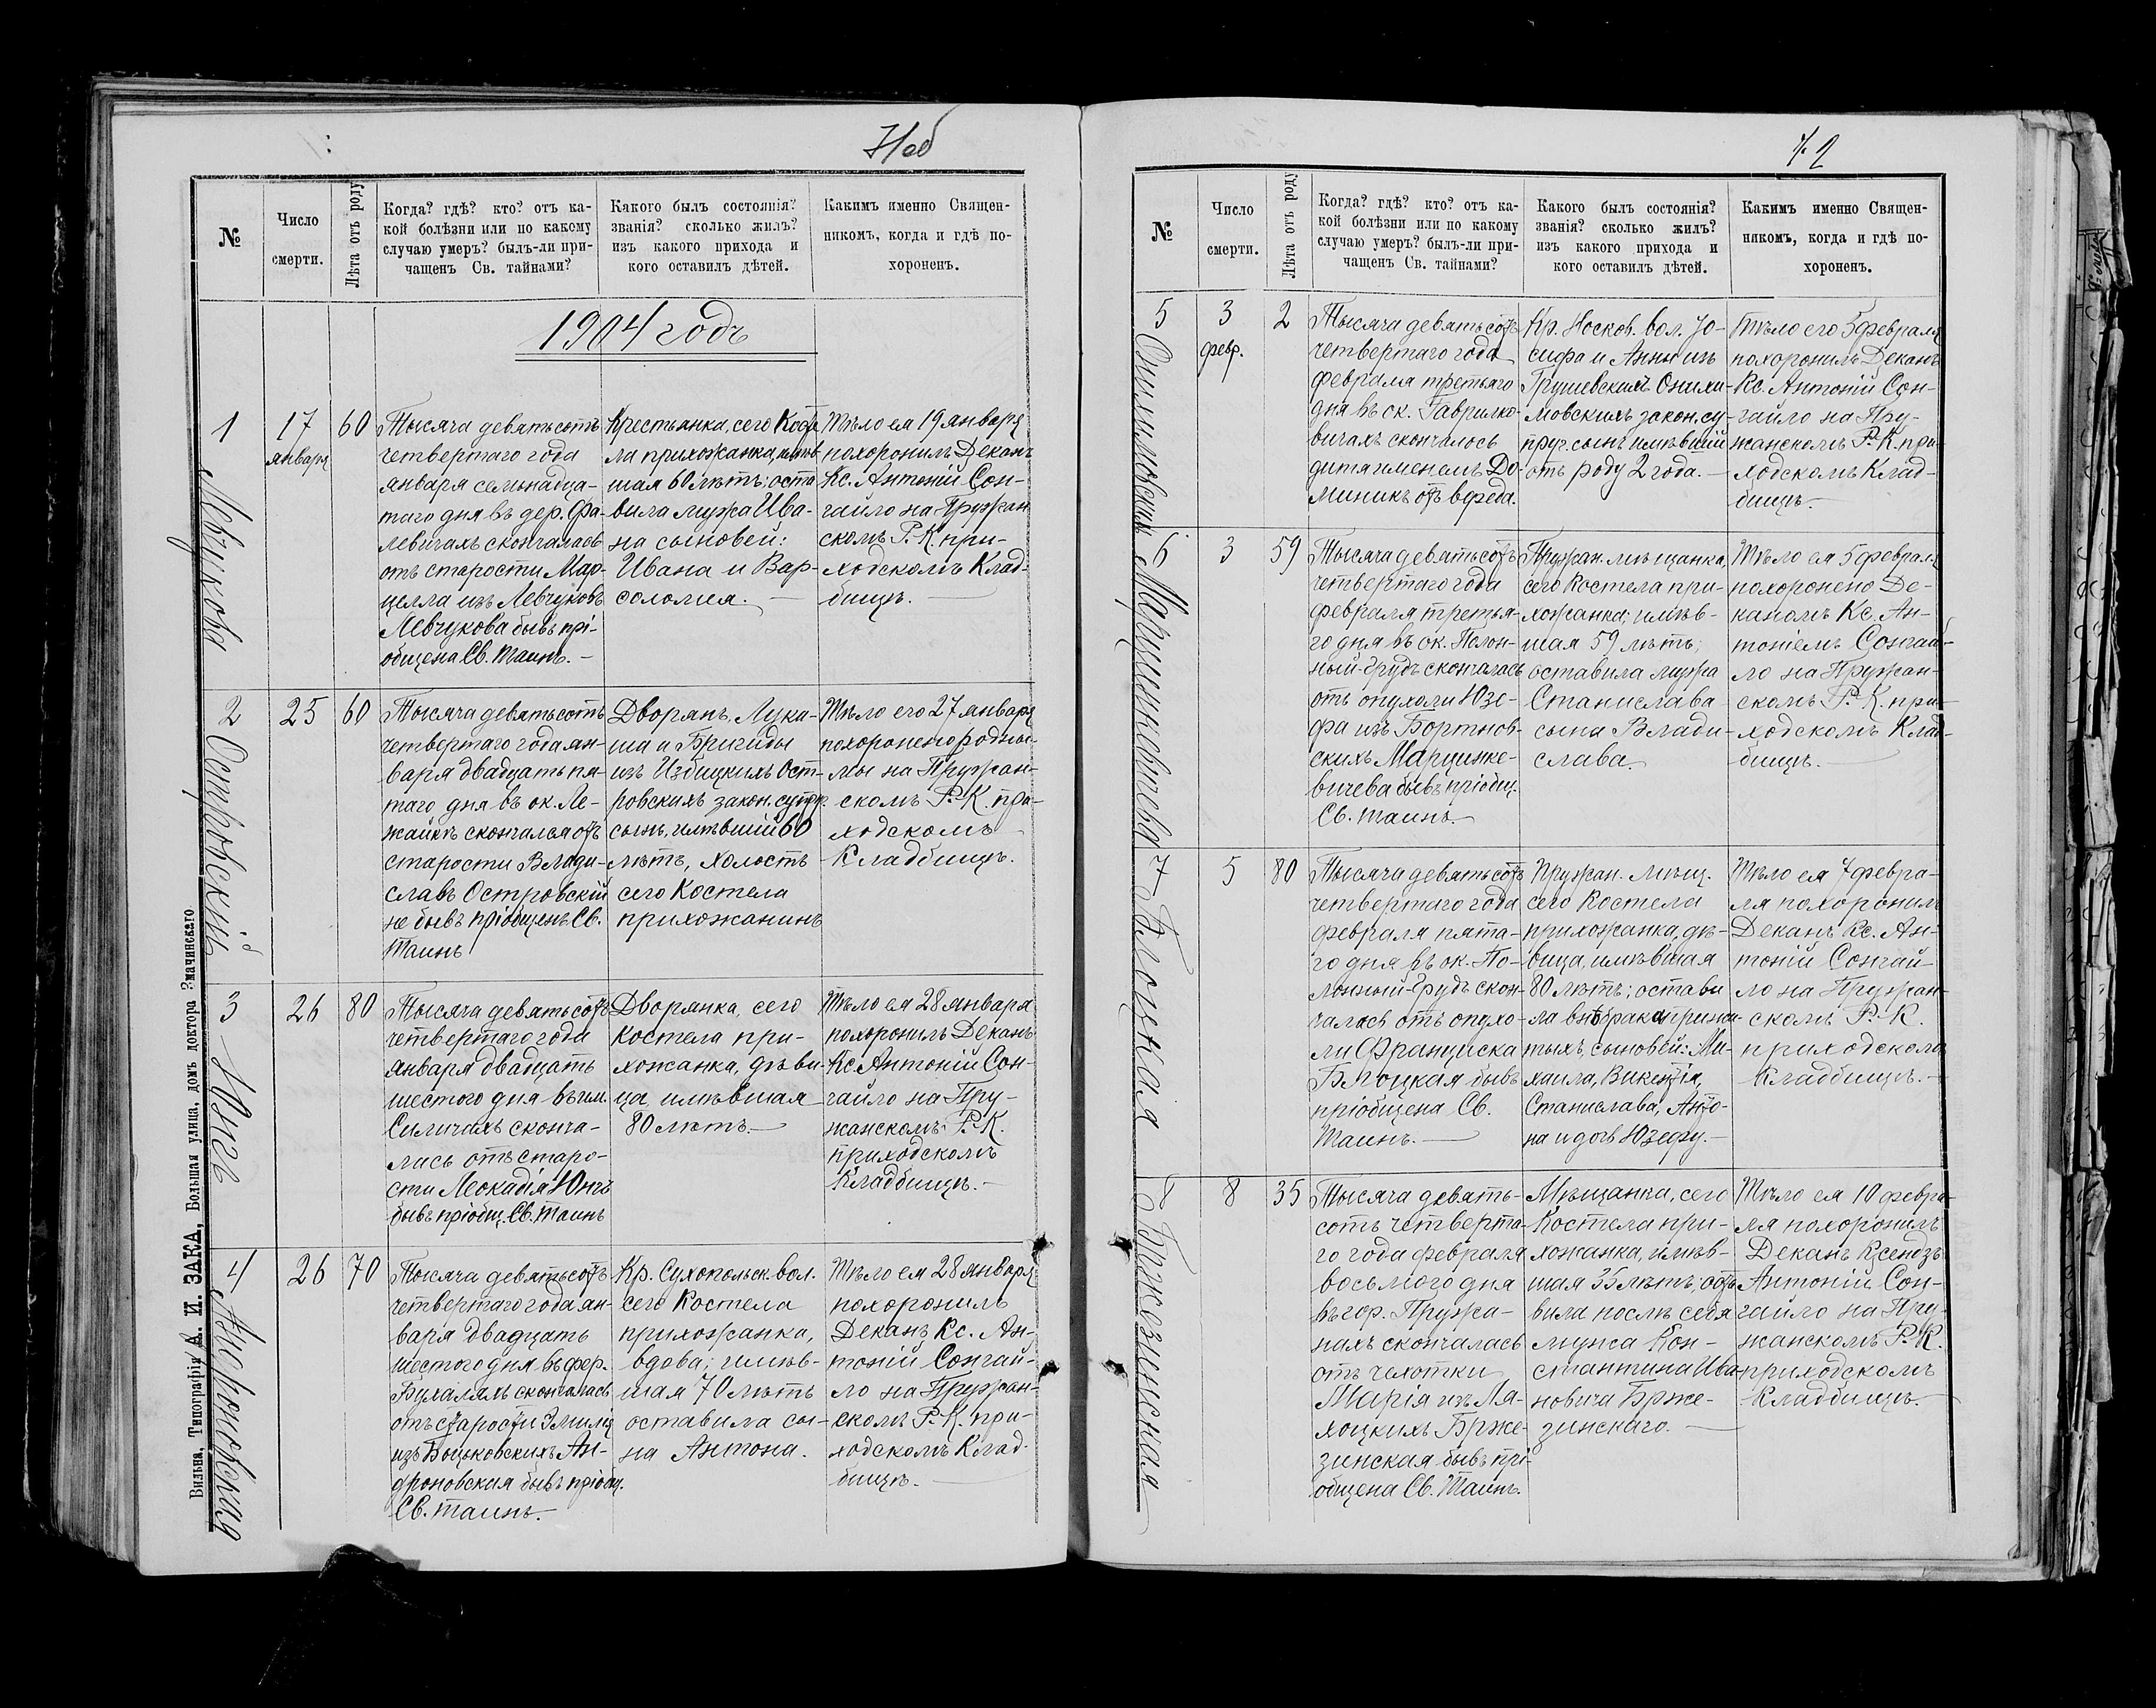 Ноб
№
Число
смерти.
Лѣта отъ роду
Когда? гдѣ? кто? отъ ка-
кой болѣзни или по какому
случаю умеръ? былъ-ли при-
чащенъ Св. тайнами?
Какого былъ состоянія?
званія? сколько жилъ?
изъ какого прихода и
кого оставилъ дѣтей.
Какимъ именно Священ-
никомъ, когда и гдѣ по-
хороненъ.
1904 годъ
1
Левчукова
17
января
60
Тысяча девятьсотъ
четвертаго года
января семьнадца-
таго дня въ дер. Фа-
левичахъ скончалась
отъ старости Мар-
целла изъ Левчуковъ
Левчукова бывъ прі-
общена Св. Таинъ. —
Крестьянка, сего Косте-
ла прихожанка, имѣв
шая 60 лѣтъ; оста
вила мужа Ива-
на сыновей:
Ивана и Вар-
соломея. —
Тѣло ея 19 января
похоронилъ Деканъ
Кс. Антоній Сон-
гайло на Пружан
скомъ Р. К. при-
ходскомъ Клад-
бищѣ. —
2
Островскій
25
60
Тысяча девятьсотъ
четвертаго года ян-
варя двадцать пя-
таго дня въ ок. Ле-
жайкѣ скончался отъ
старости Влади-
славъ Островскій
не бывъ пріобщенъ Св.
Таинъ
Дворянъ, Лука-
ша и Бригиды
изъ Избицкихъ Ост-
ровскихъ закон. супр.
сынъ, имѣвшій 60
лѣтъ, холостъ
сего Костела
прихожанинъ
Тѣло его 27 января
похоронено родны-
мы на Пружан-
скомъ Р. К. при-
ходскомъ
Кладбищѣ.
3
Юнев
26
80
Тысяча девятьсотъ
четвертаго года
января двадцать
шестого дня въ им.
Силичахъ сконча-
лась отъ старо-
сти Леокадія Юнчъ
бывъ пріобщ. Св. Таинъ
Дворянка, сего
костела при-
хожанка, дѣви-
ца имѣвшая
80 лѣтъ. —
Тѣло ея 28 января
похоронилъ Деканъ
Кс. Антоній Сон-
гайло на Пру-
жанскомъ Р. К.
приходскомъ
Кладбищѣ. —
4
Андроновская
26
70
Тысяча девятьсотъ
четвертаго года ян-
варя двадцать
шестого дня въ фер.
Бухаляхъ скончалась
отъ старости Эмилія
изъ Боцьковскихъ Ан-
дроновская бывъ пріобщ.
Св. таинъ. —
Кр. Сухопольск. вол.
сего Костела
прихожанка,
вдова; имѣв-
шая 70 лѣтъ
оставила сы-
на Антона.
Тѣло ея 28 января
похоронилъ
Деканъ Кс. Ан-
тоній Сонгай-
ло на Пружан-
скомъ Р. К. при-
ходскомъ Клад-
бищѣ. —
Вильна, Типографія А. И. ЗАКА, Большая улица, домъ доктора Змачинскаго
№
Число
смерти.
Лѣта отъ роду
Когда? гдѣ? кто? отъ ка-
кой болѣзни или по какому
случаю умеръ? былъ-ли при-
чащенъ Св. тайнами?
Какого былъ состоянія?
званія? сколько жилъ?
изъ какого прихода и
кого оставилъ дѣтей.
Какимъ именно Священ-
никомъ, когда и гдѣ по-
хороненъ.
5
Онихимовскій
3
февр.
2
Тысяча девятьсотъ
четвертаго года
февраля третьяго
дня въ ок. Гаврилко-
вичахъ скончалось
дитя именемъ До-
миникъ отъ
Кр. Носков. вол. Іо-
сифа и Анны изъ
Грушевскихъ Онихи-
мовскихъ закон. су-
пруг. сынъ имѣвшій
отъ роду 2 года. —
Тѣло его 5 февраля
похоронилъ Деканъ
Кс. Антоній Сон-
гайло на Пру-
жанскомъ Р. К. при-
ходскомъ Клад-
бищѣ. —
6
Марцинкевичева
3
59
Тысяча девятьсотъ
четвертаго года
февраля третья-
го дня въ ок. Полон-
ный-Грудъ скончалась
отъ опухоли Юзе-
фа изъ Бортнов-
скихъ Марцинке-
вичева бывъ пріобщ.
Св. таинъ. —
Пружан. мѣщанка,
сего Костела при-
хожанка; имѣв-
шая 59 лѣтъ;
оставила мужа
Станислава
сына Влади-
слава.
Тѣло ея 5 февраля
похоронено Де-
каномъ Кс. Ан-
тоніемъ Сонгай-
ло на Пружан-
скомъ Р. К. при-
ходскомъ Клад-
бищѣ. —
7
Блоцкая
5
80
Тысяча девятьсотъ
четвертаго года
февраля пята-
го дня въ ок. По-
лонный-Грудъ скон-
чалась отъ опухо-
ли Франциска
Блоцкая бывъ
пріобщена Св.
Таинъ. —
Пружан. мѣщ.
сего Костела
прихожанка, дѣ-
вица, имѣвшая
80 лѣтъ; остави
ла внѣ брака прижи-
тыхъ, сыновей: Ми-
хаила, Викентія,
Станислава, Анто-
на и дочь Юзефу. —
Тѣло ея 7 февра-
ля похоронилъ
Деканъ Кс. Ан-
тоній Сонгай-
ло на Пружан-
скомъ Р. К.
приходскомъ
Кладбищѣ. —
8
Бржезинская
8
35
Тысяча девять-
сотъ четверта-
го года февраля
восьмого дня
въ гор. Пружа-
нахъ скончалась
отъ чахотки
Марія изъ Ла-
хоцкихъ Брже-
зинская бывъ прі-
общена Св. Таинъ.
Мѣщанка, сего
Костела при-
хожанка, имѣв-
шая 35 лѣтъ; оста
вила послѣ себя
мужа Кон-
стантина Ива-
новича Брже-
зинскаго. —
Тѣло ея 10 февра-
ля похоронилъ
Деканъ Ксендзъ
Антоній Сон-
гайло на Пру-
жанскомъ Р. К.
приходскомъ
Кладбищѣ. —